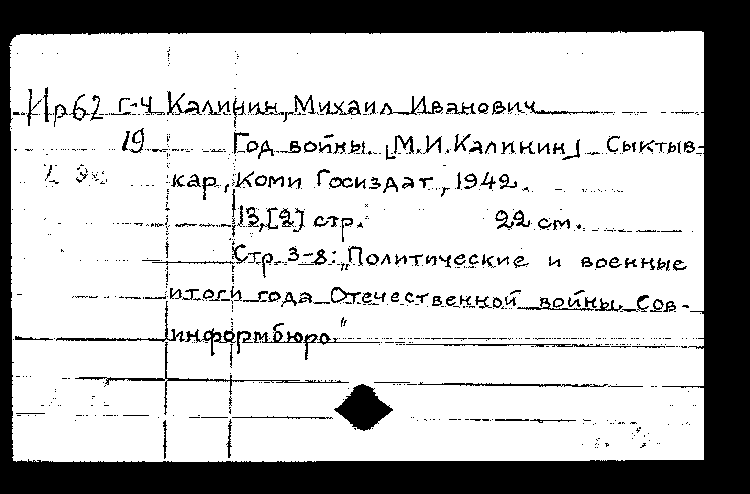 Ир62 Г-4 Калинин, Михаил Иванович
19 Год войны. [М.И.Калинин] Сыктыв-
2 Экз кар, Коми Госиздат, 1942.
13,[2] стр. 22 см.
Стр. 3-8: „Политические и военные
итоги года Отечественной войны. Сов-
информбюро."